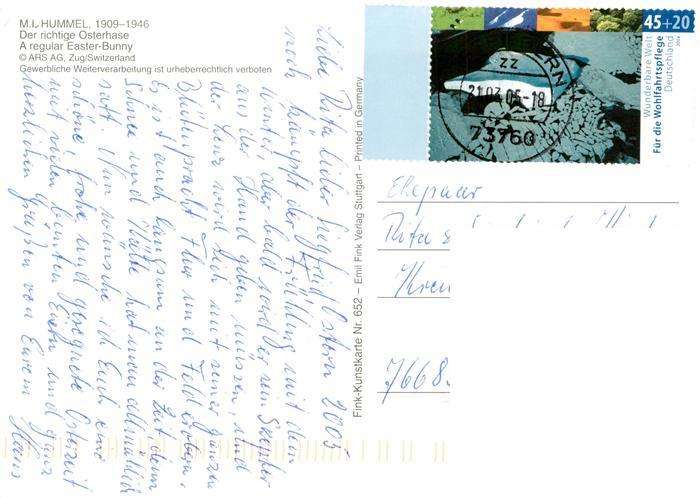 M.I. HUMMEL, 1909–1946
Der richtige Osterhase
A regular Easter-Bunny
© ARS AG, Zug/Switzerland
Gewerbliche Weiterverarbeitung ist urheberrechtlich verboten
Ostern 2005
Liebe Rita, lieber Siegfried,
noch kämpft der Frühling mit dem
Winter, aber bald wird er sein Szepter
aus der Hand geben müssen, und
der Lenz wird sich mit seiner ganzen
Blütenpracht Flur und Feld erobern.
Es ist auch langsam an der Zeit, denn
Schnee und Kälte hat man allmählich
satt. Nun wünsche ich Euch eine
schöne, frohe und gesegnete Osterzeit
mit vielen bunten Eiern und ganz
herzlichen Grüßen von Eurem Hans
Fink-Kunstkarte Nr. 652 – Emil Fink Verlag Stuttgart – Printed in Germany
45+20
Wunderbare Welt
Für die Wohlfahrtspflege
Deutschland
zz
21.03.05-18
73760
Ehepaar
Rita
7668